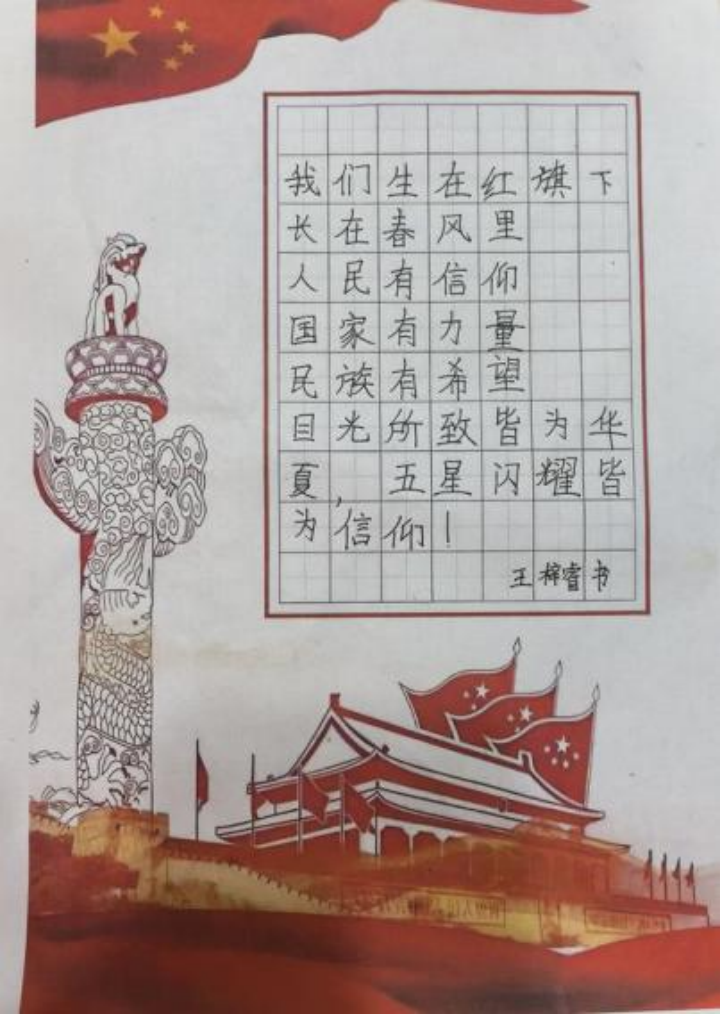 我们生在红旗下
长在春风里
人民有信仰
国家有力量
民族有希望
目光所致皆为华
夏，五星闪耀皆
为信仰！
王梓睿书